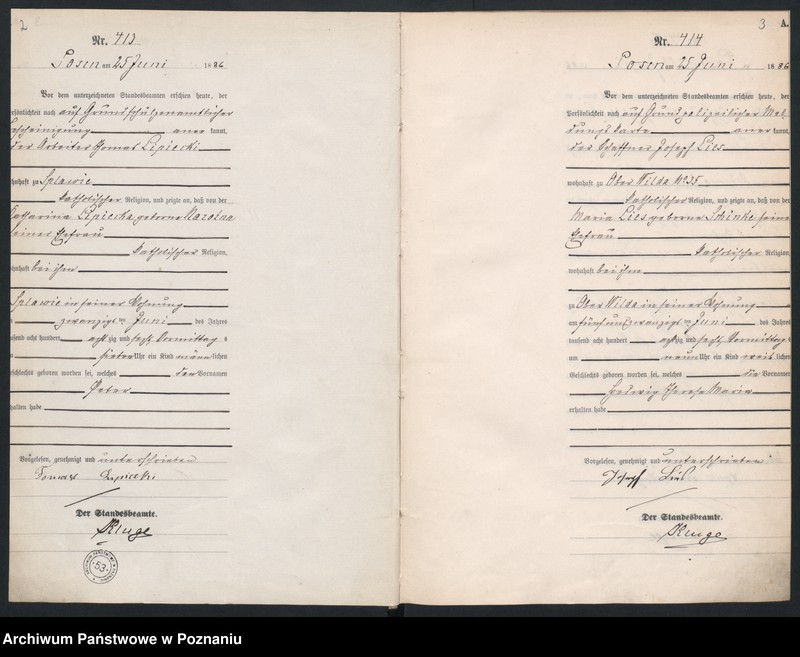 2
Nr. 413
Posen am 25 Juni 1886
Vor dem unterzeichneten Standesbeamten erschien heute, der
Persönlichkeit nach auf Grund schulzenamtlicher
Bescheinigung anerkannt,
der Arbeiter Thomas Lipiecki
wohnhaft zu Splawie
katholischer Religion, und zeigte an, daß von der
Katharina Lipiecka geborne
seiner Ehefrau
katholischer Religion,
wohnhaft bei ihm
Splawie in seiner Wohnung
zwanzigsten Juni des Jahres
tausend acht hundert achtzig und sechs Vormittags
sieben Uhr ein Kind männlichen
Geschlechts geboren worden sei, welches den Vornamen
Peter
erhalten habe
Vorgelesen, genehmigt und unterschrieben
Tomas Lipiecki
Der Standesbeamte.
Kluge
53
3 A.
Nr. 414
Posen am 25 Juni 1886
Vor dem unterzeichneten Standesbeamten erschien heute, der
Persönlichkeit nach auf Grund polizeilicher Mel
dungskarte anerkannt,
der Schaffner Joseph Lies
wohnhaft zu Ober Wilda No 35
katholischer Religion, und zeigte an, daß von der
Maria Lies geborne Schinke seiner
Ehefrau
katholischer Religion,
wohnhaft bei ihm
zu Ober Wilda in seiner Wohnung
am fünf und zwanzigsten Juni des Jahres
tausend acht hundert achtzig und sechs Vormittags
um neun Uhr ein Kind weiblichen
Geschlechts geboren worden sei, welches die Vornamen
Hedwig Therese Maria
erhalten habe
Vorgelesen, genehmigt und unterschrieben
Joseph Lies
Der Standesbeamte.
Kluge
Archiwum Państwowe w Poznaniu